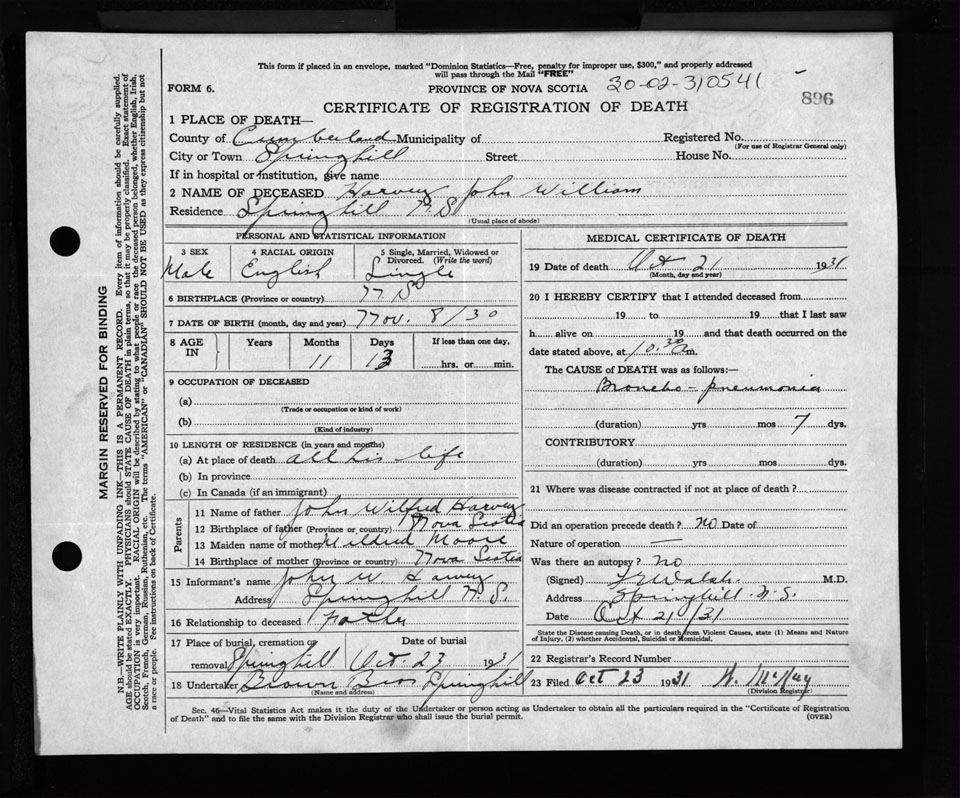 This form if placed in an envelope, marked "Dominion Statistics—Free, penalty for improper use, $300," and properly addressed
will pass through the Mail "FREE"
FORM 6. PROVINCE OF NOVA SCOTIA 30-02-310541
896
CERTIFICATE OF REGISTRATION OF DEATH
1 PLACE OF DEATH—
County of Cumberland Municipality of Registered No.
(For use of Registrar General only)
City or Town Springhill Street House No.
If in hospital or institution, give name
2 NAME OF DECEASED Harvey John William
Residence Springhill N.S.
(Usual place of abode)
PERSONAL AND STATISTICAL INFORMATION
3 SEX 4 RACIAL ORIGIN 5 Single, Married, Widowed or
Divorced. (Write the word)
Male English Single
6 BIRTHPLACE (Province or country) N S
7 DATE OF BIRTH (month, day and year) Nov. 8/30
8 AGE IN Years Months Days If less than one day,
11 13 hrs. or min.
9 OCCUPATION OF DECEASED
(a)
(Trade or occupation or kind of work)
(b)
(Kind of industry)
10 LENGTH OF RESIDENCE (in years and months)
(a) At place of death all his life
(b) In province
(c) In Canada (if an immigrant)
Parents
11 Name of father John Wilfred Harvey
12 Birthplace of father (Province or country) Nova Scotia
13 Maiden name of mother Mildred Moore
14 Birthplace of mother (Province or country) Nova Scotia
15 Informant's name John W Harvey
Address Springhill N.S.
16 Relationship to deceased Father
17 Place of burial, cremation or Date of burial
removal Springhill Oct. 23 1931
18 Undertaker Brown Bros Springhill
(Name and address)
MEDICAL CERTIFICATE OF DEATH
19 Date of death Oct 21 1931
(Month, day and year)
20 I HEREBY CERTIFY that I attended deceased from
19 to 19 that I last saw
h alive on 19 and that death occurred on
date stated above, at 10.30 A m.
The CAUSE of DEATH was as follows:—
Broncho-pneumonia
(duration) yrs mos 7 dys.
CONTRIBUTORY
(duration) yrs mos dys.
21 Where was disease contracted if not at place of death?
Did an operation precede death? no Date of
Nature of operation —
Was there an autopsy? no
(Signed) Walsh M.D.
Address Springhill N.S.
Date Oct 21/31
State the Disease causing Death, or in death from Violent Causes, state (1) Means and Nature
of Injury, (2) whether Accidental, Suicidal or Homicidal.
22 Registrar's Record Number
23 Filed Oct 23 1931 W. McKay
(Division Registrar)
Sec. 46—Vital Statistics Act makes it the duty of the Undertaker or person acting as Undertaker to obtain all the particulars required in the "Certificate of Registration
of Death" and to file the same with the Division Registrar who shall issue the burial permit. (OVER)
MARGIN RESERVED FOR BINDING
N.B.—WRITE PLAINLY WITH UNFADING INK—THIS IS A PERMANENT RECORD. Every item of information should be carefully supplied.
AGE should be stated EXACTLY. PHYSICIANS should STATE CAUSE OF DEATH in plain terms, so that it may be properly classified. Exact statement of
OCCUPATION is very important. RACIAL ORIGIN will be described by stating to what people or race the deceased person belonged, whether English, Irish,
Scotch, French, German, Russian, Ruthenian, etc. The terms "AMERICAN" or "CANADIAN" SHOULD NOT BE USED as they express citizenship but not
a race or people. See instructions on back of Certificate.